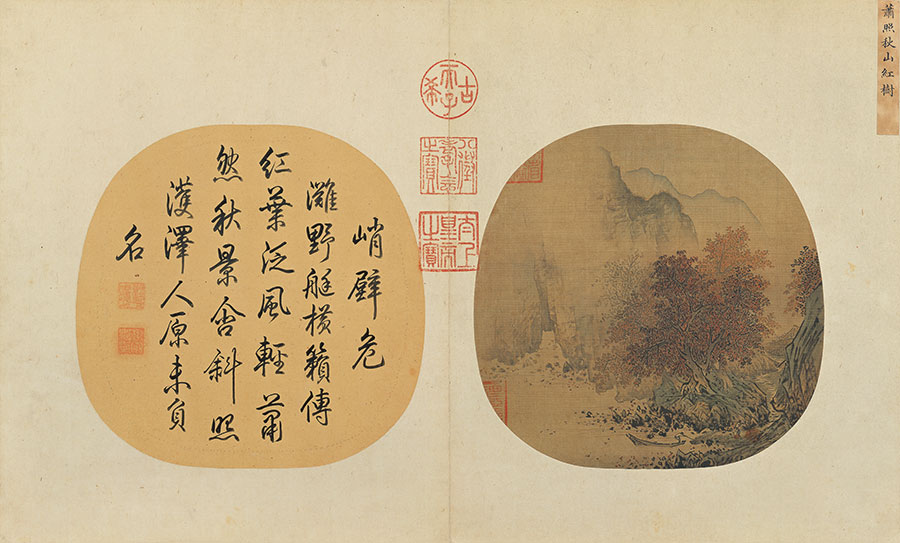 蕭照秋山紅樹
古希天子
八徵耄念之寶
太上皇帝之寶
峭壁危
灘野艇橫籟傳
紅葉泛風輕蕭
然秋景含斜照
濩澤人原未負
名